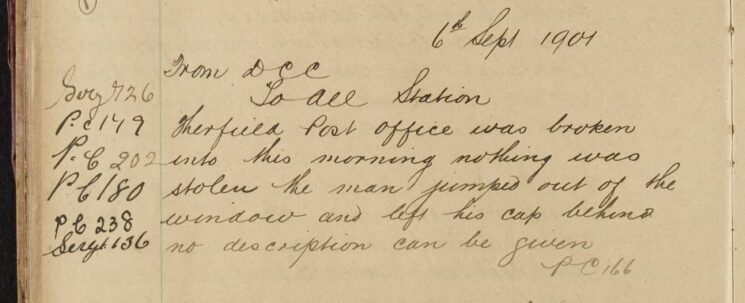 6th Sept 1901
From D C C
To All Station
Sergt 726
P.C 149
P.C 202
P C 180
P C 238
Sergt 136
Therfield Post office was broken
into this morning nothing was
stolen the man jumped out of the
window and left his cap behind
no description can be given
P C 166